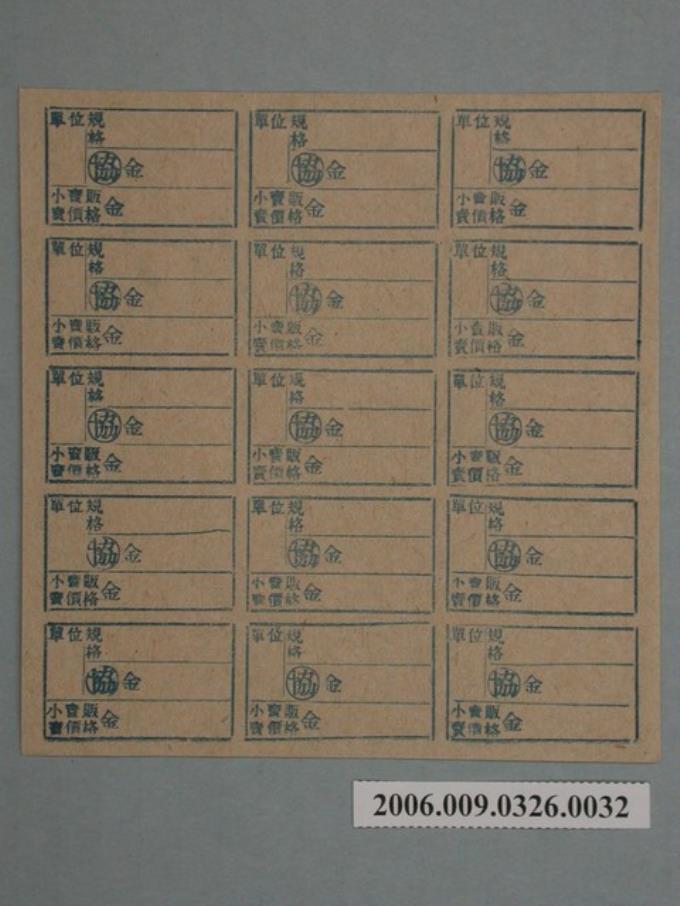 單位 規格
協 金
小賣販
賣價格 金
單位 規格
協 金
小賣販
賣價格 金
單位 規格
協 金
小賣販
賣價格 金
單位 規格
協 金
小賣販
賣價格 金
單位 規格
協 金
小賣販
賣價格 金
單位 規格
協 金
小賣販
賣價格 金
單位 規格
協 金
小賣販
賣價格 金
單位 規格
協 金
小賣販
賣價格 金
單位 規格
協 金
小賣販
賣價格 金
單位 規格
協 金
小賣販
賣價格 金
單位 規格
協 金
小賣販
賣價格 金
單位 規格
協 金
小賣販
賣價格 金
單位 規格
協 金
小賣販
賣價格 金
單位 規格
協 金
小賣販
賣價格 金
單位 規格
協 金
小賣販
賣價格 金
2006.009.0326.0032